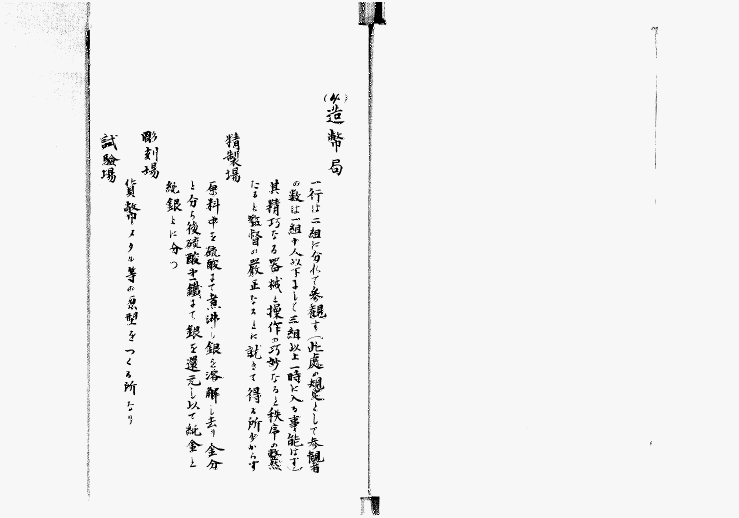 造幣局
一行は二組に分れて参観す(此處の規定として参観者
の数は一組十人以下にして三組以上一時に入る事能はず)
其精巧なる器械と操作の巧妙なると秩序の整然
たると監督の厳正なるとに就きて得る所少からず
精製場
原料中を硫酸にて煮沸し銀を溶解し去り金分
と分ち後硫酸第一鐵にて銀を還元し以て純金と
純銀とに分つ
彫刻場
貨幣メタル等の原型をつくる所なり
試験場